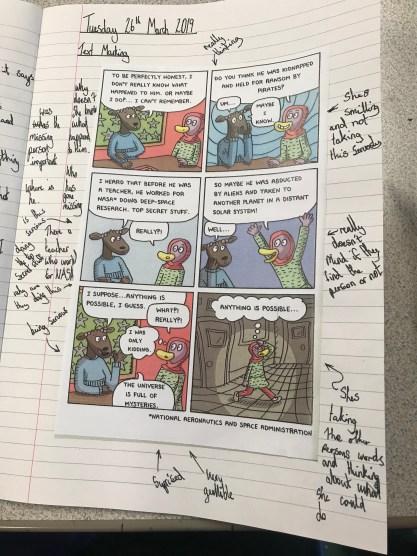 Tuesday 26th March 2019
Text Marking
really
thinking
TO BE PERFECTLY HONEST, I
DON'T REALLY KNOW WHAT
HAPPENED TO HIM. OR MAYBE
I DO?... I CAN'T REMEMBER.
DO YOU THINK HE WAS KIDNAPPED
AND HELD FOR RANSOM BY
PIRATES?
UM...
MAYBE
I
KNOW.
I HEARD THAT BEFORE HE WAS
A TEACHER, HE WORKED FOR
NASA* DOING DEEP-SPACE
RESEARCH. TOP SECRET STUFF.
REALLY?!
SO MAYBE HE WAS ABDUCTED
BY ALIENS AND TAKEN TO
ANOTHER PLANET IN A DISTANT
SOLAR SYSTEM!
WELL...
I SUPPOSE...ANYTHING IS
POSSIBLE, I GUESS.
WHAT?!
REALLY?!
I WAS
ONLY
KIDDING.
THE UNIVERSE
IS FULL OF
MYSTERIES.
ANYTHING IS POSSIBLE...
*NATIONAL AERONAUTICS AND SPACE ADMINISTRATION
says
Why
doesn't
she know
what
happend
to him.
was
the
missing
person
important
Where is
he
Who
has
gone
missing
is this
There is
a teacher
who worked
for NASA
why are
they doing this
being serious
She's
smiling
and not
taking
this seriously
really
doesn't
mind if they
find the
person or not
Shes
taking
the other
persons words
and thinking
about what
she could
do
Suprised
very
gullible